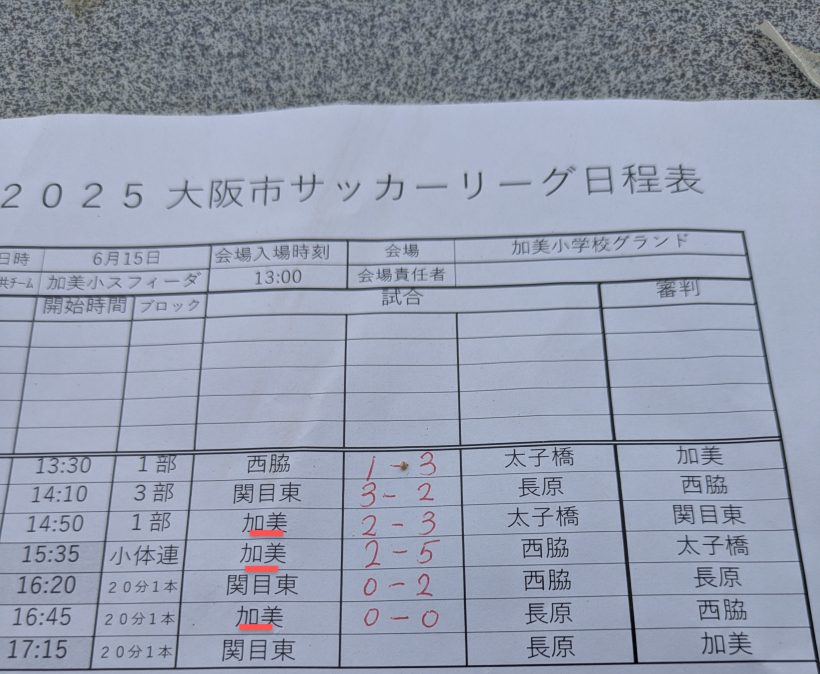 ２０２５ 大阪市サッカーリーグ日程表
日時 6月15日 会場入場時刻 会場 加美小学校グランド
共ﾁｰﾑ 加美小スフィーダ 13:00 会場責任者
開始時間 ブロック 試合 審判
13:30 1部 西脇 1-3 太子橋 加美
14:10 3部 関目東 3-2 長原 西脇
14:50 1部 加美 2-3 太子橋 関目東
15:35 小体連 加美 2-5 西脇 太子橋
16:20 20分1本 関目東 0-2 西脇 長原
16:45 20分1本 加美 0-0 長原 西脇
17:15 20分1本 関目東 長原 加美